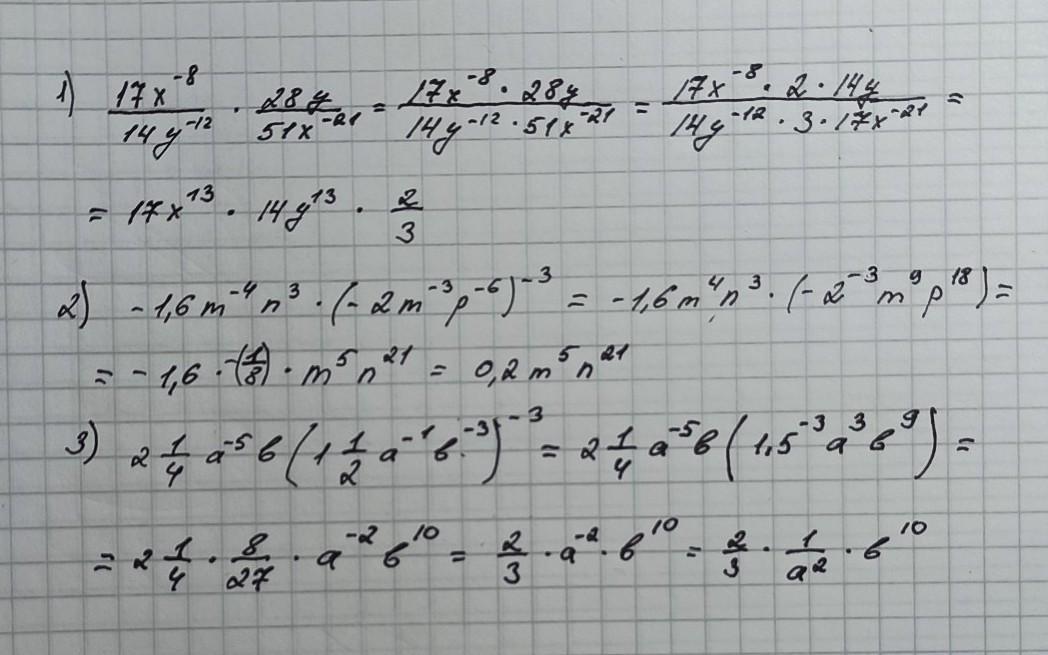 1) 17x⁻⁸/14y⁻¹² · 28y/51x⁻²¹ = 17x⁻⁸ · 28y/14y⁻¹² · 51x⁻²¹ = 17x⁻⁸ · 2 · 14y/14y⁻¹² · 3 · 17x⁻²¹ =
= 17x¹³ · 14y¹³ · 2/3
2) -1,6m⁻⁴n³ · (-2m⁻³p⁻⁶)⁻³ = -1,6m⁴n³ · (-2⁻³m⁹p¹⁸) =
= -1,6 · -(1/8) · m⁵n²¹ = 0,2m⁵n²¹
3) 2 1/4 a⁻⁵в(1 1/2 a⁻¹в⁻³)⁻³ = 2 1/4 a⁻⁵в(1,5⁻³a³в⁹) =
= 2 1/4 · 8/27 · a⁻²в¹⁰ = 2/3 · a⁻² · в¹⁰ = 2/3 · 1/a² · в¹⁰